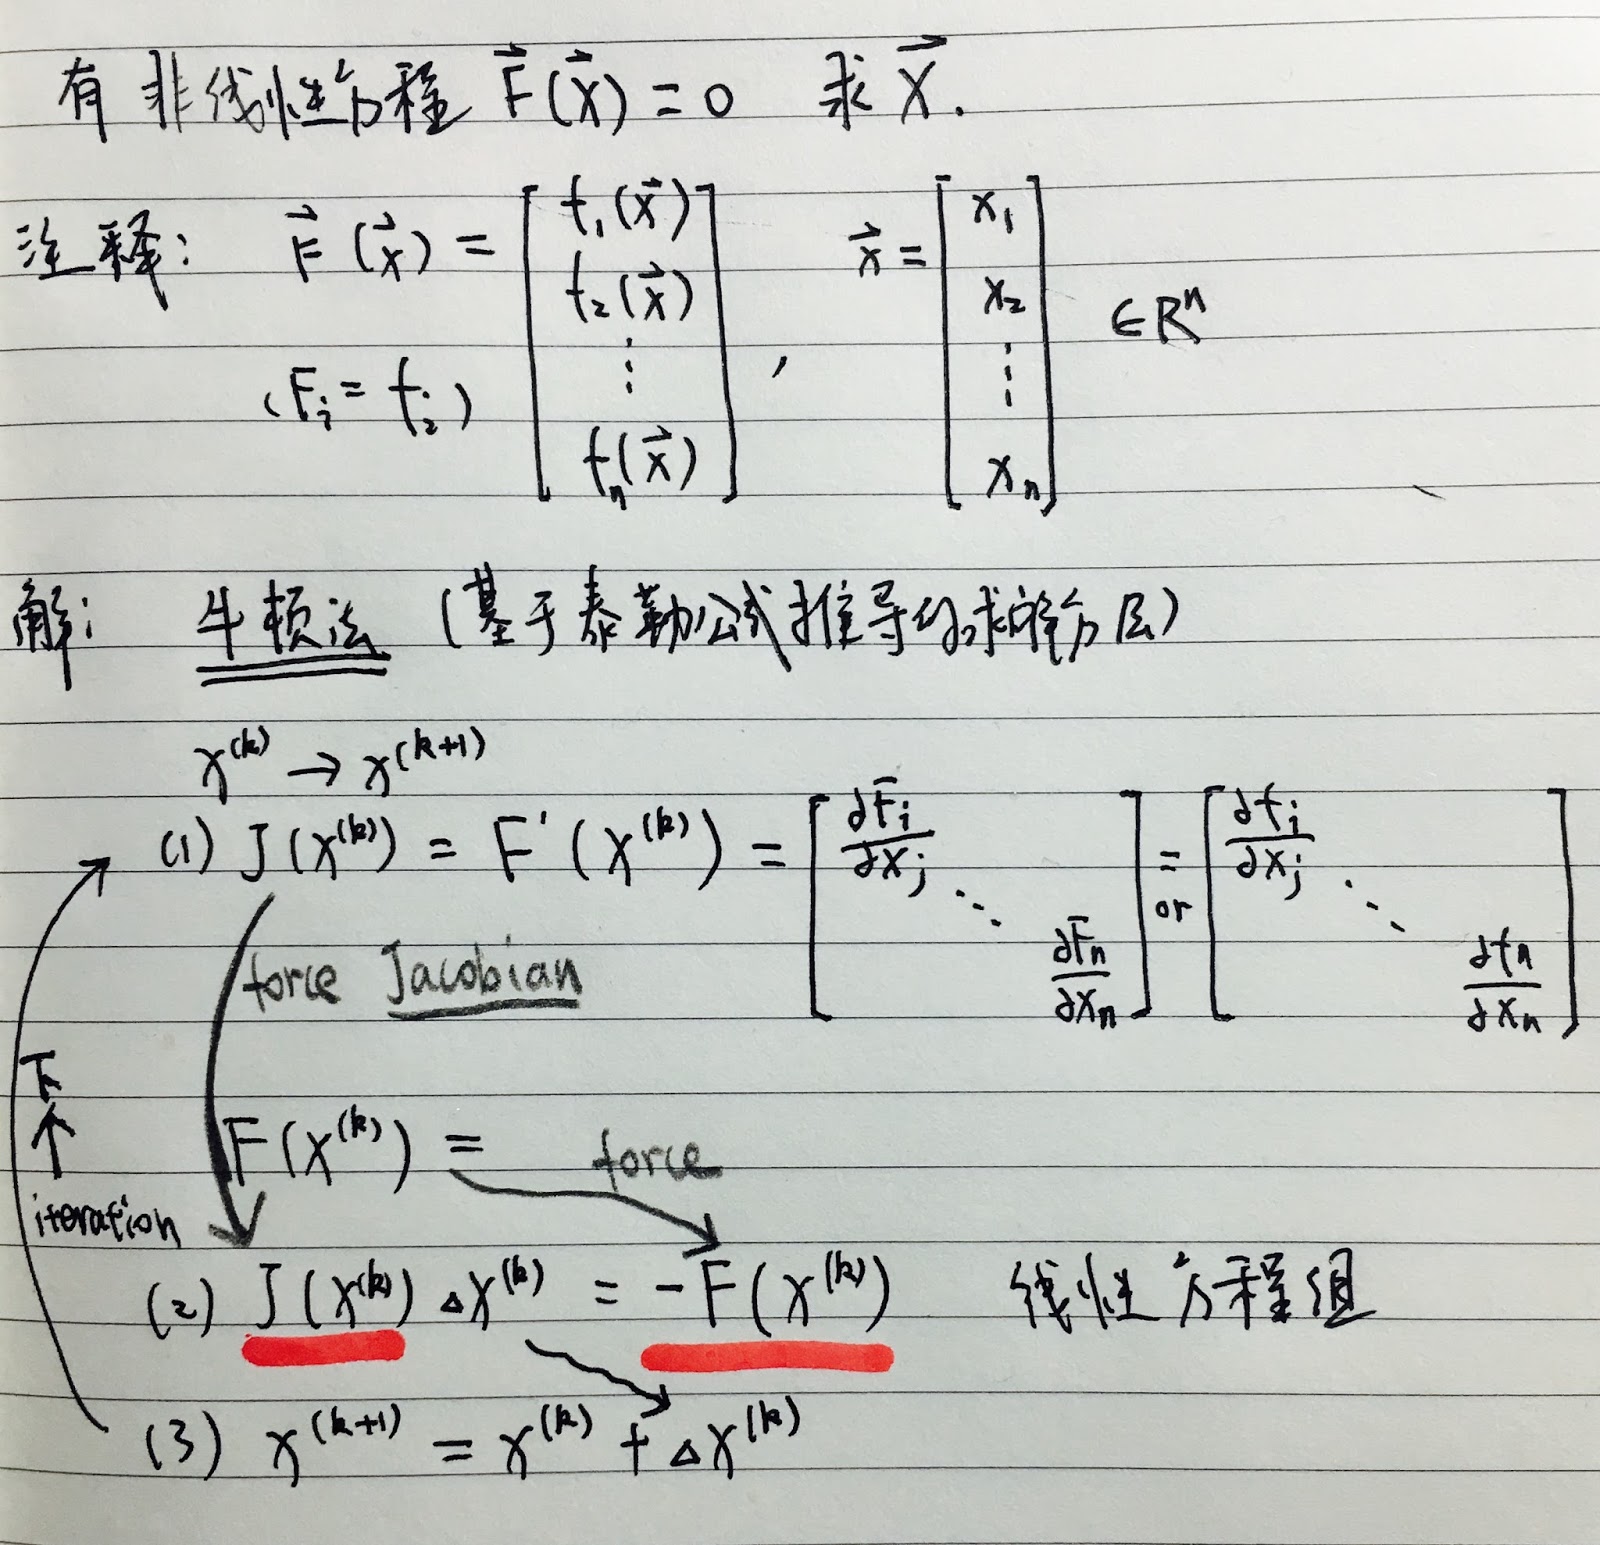 有非线性方程 F⃗(x⃗)=0 求 X⃗.
注释: F⃗(x⃗) = [ f₁(x⃗) f₂(x⃗) ⋮ fₙ(x⃗) ] , x⃗ = [ x₁ x₂ ⋮ xₙ ] ∈Rⁿ
(Fᵢ = fᵢ)
解: 牛顿法 (基于泰勒公式推导的求解方法)
x⁽ᵏ⁾ → x⁽ᵏ⁺¹⁾
(1) J(x⁽ᵏ⁾) = F'(x⁽ᵏ⁾) = [ ∂Fᵢ/∂xⱼ ⋱ ∂Fₙ/∂xₙ ] = or [ ∂fᵢ/∂xⱼ ⋱ ∂fₙ/∂xₙ ]
force Jacobian
F(x⁽ᵏ⁾) =
force
iteration
(2) J(x⁽ᵏ⁾) △x⁽ᵏ⁾ = -F(x⁽ᵏ⁾) 线性方程组
(3) x⁽ᵏ⁺¹⁾ = x⁽ᵏ⁾ + △x⁽ᵏ⁾